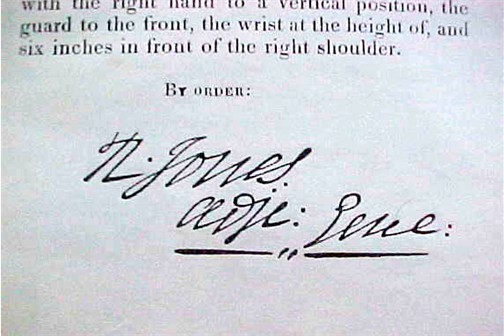 with the right hand to a vertical position, the
guard to the front, the wrist at the height of, and
six inches in front of the right shoulder.
By order:
R. Jones
Adjt: Genl: